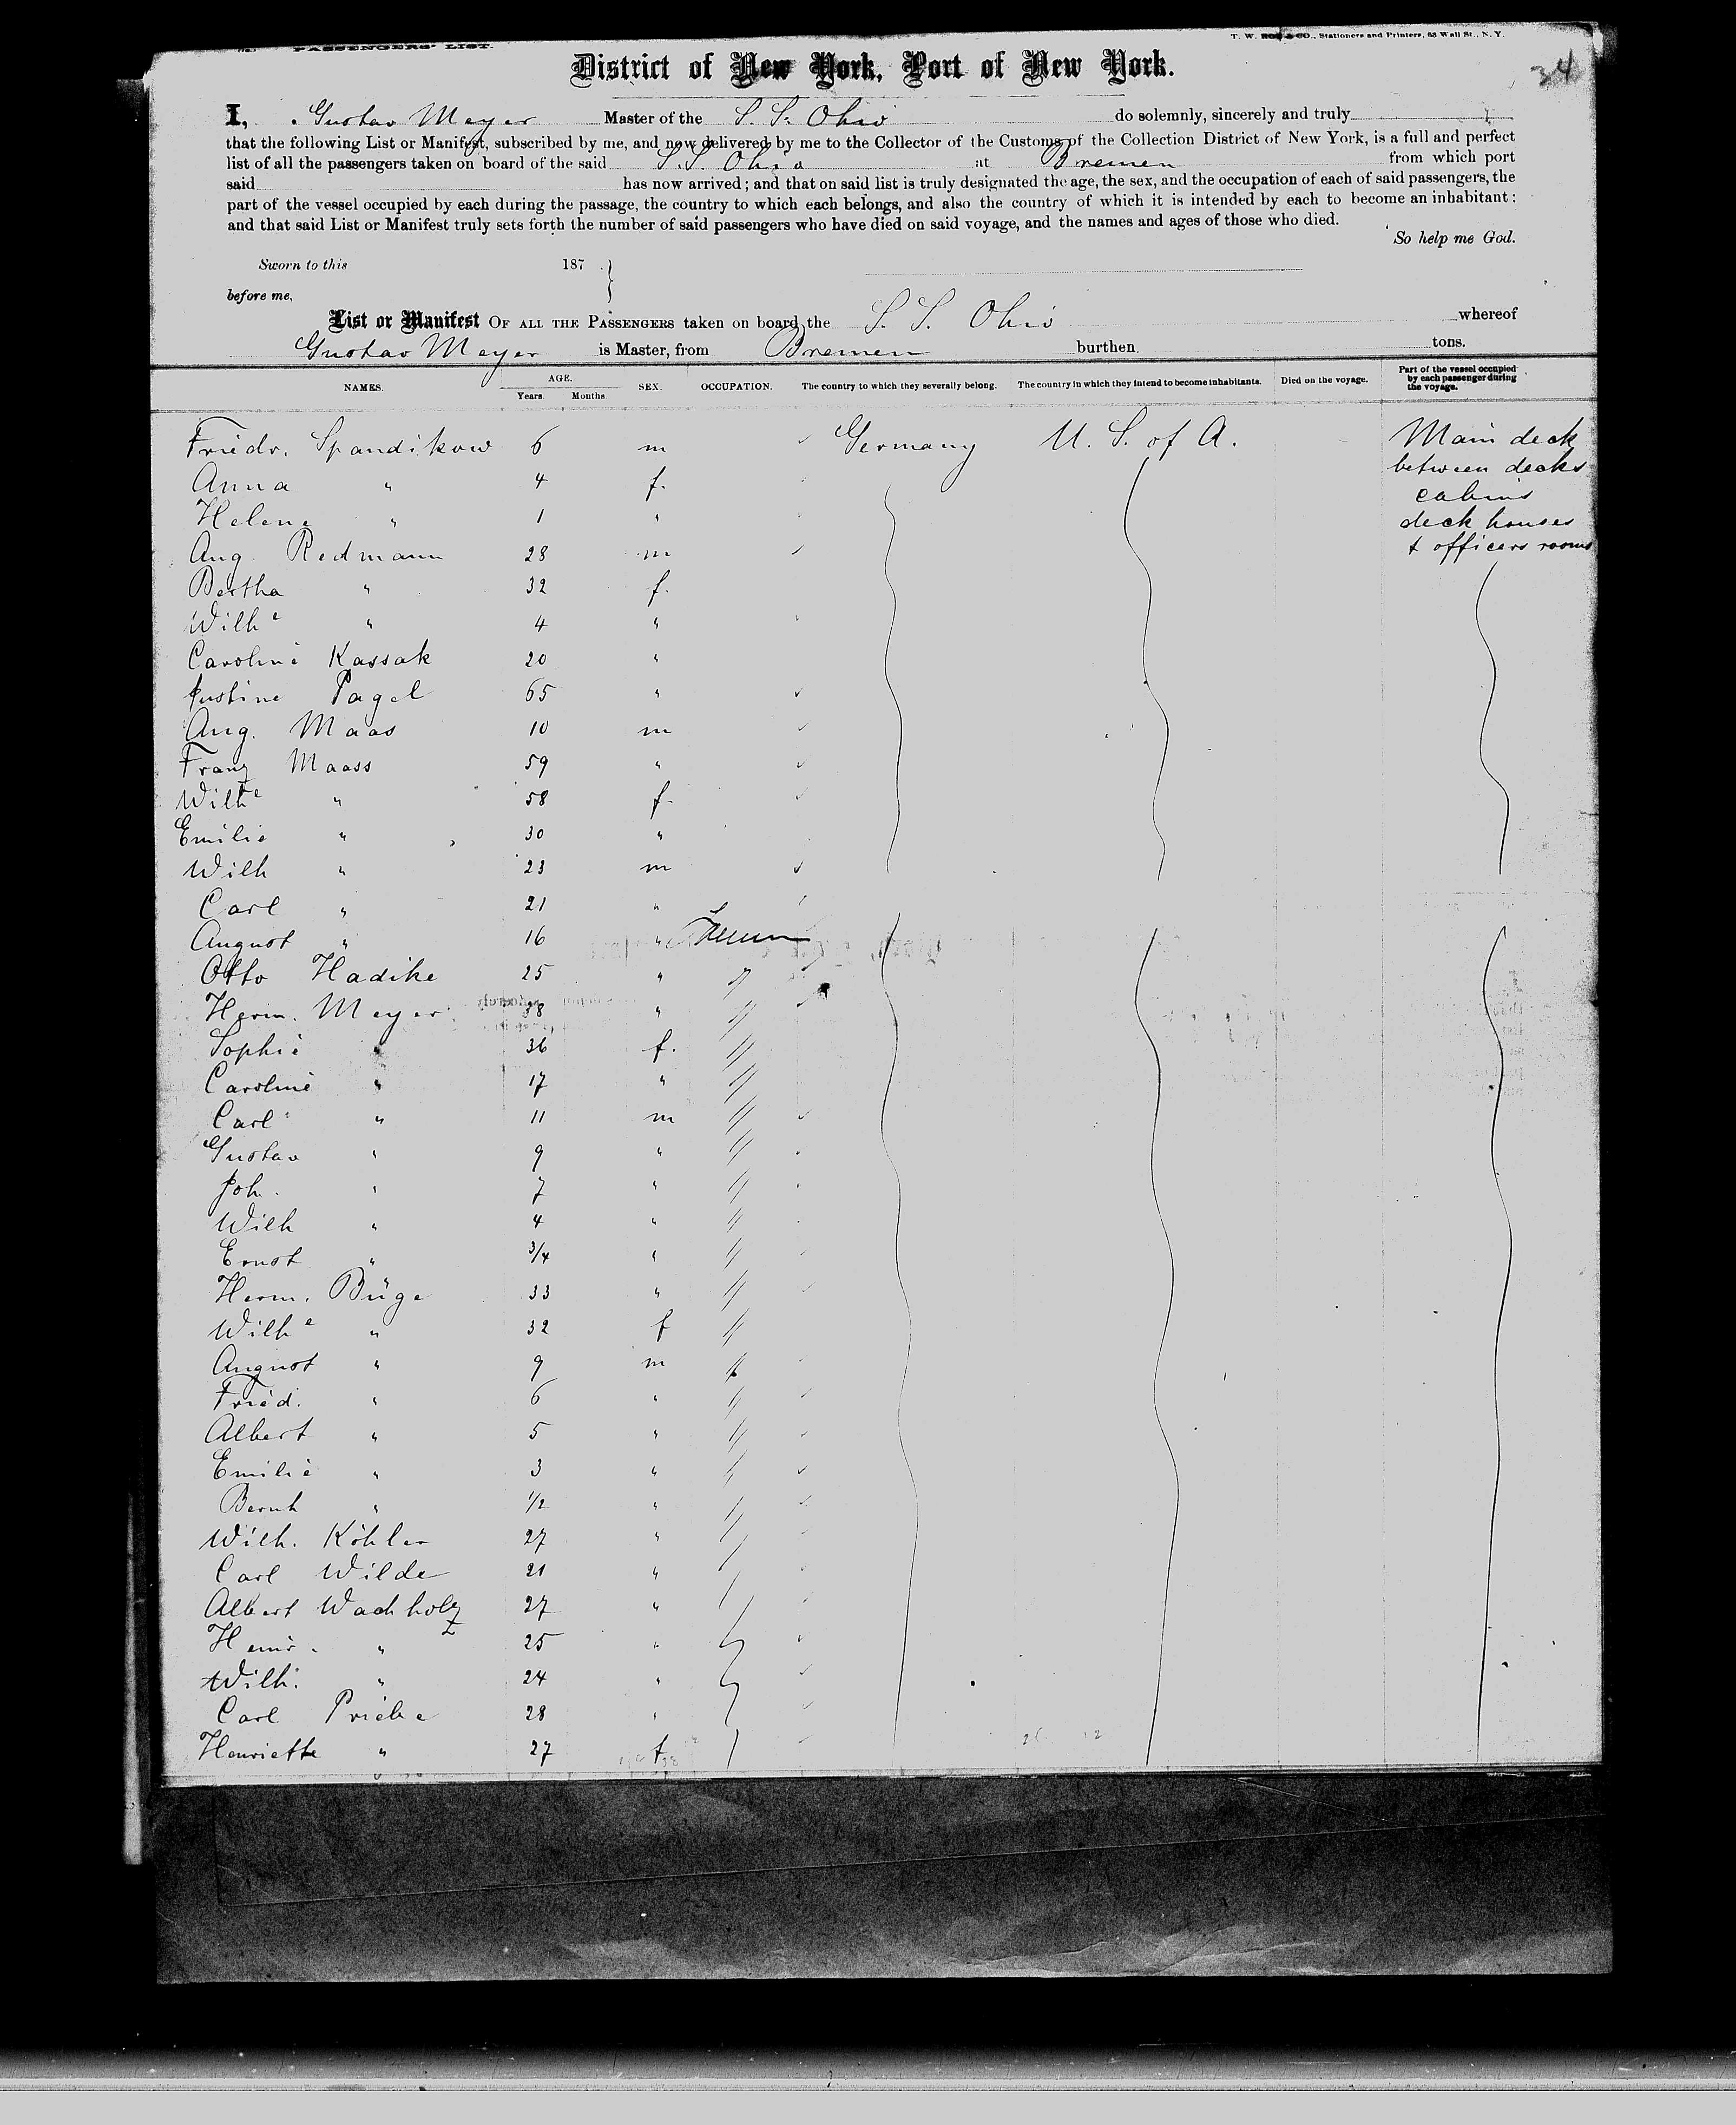 PASSENGERS' LIST.
T. W. & CO., Stationers and Printers, 63 Wall St., N. Y.
34
District of New York, Port of New York.
I, Gustav Meyer Master of the S. S. Ohio do solemnly, sincerely and truly
that the following List or Manifest, subscribed by me, and now delivered by me to the Collector of the Customs of the Collection District of New York, is a full and perfect
list of all the passengers taken on board of the said S. S. Ohio at Bremen from which port
said has now arrived; and that on said list is truly designated the age, the sex, and the occupation of each of said passengers, the
part of the vessel occupied by each during the passage, the country to which each belongs, and also the country of which it is intended by each to become an inhabitant:
and that said List or Manifest truly sets forth the number of said passengers who have died on said voyage, and the names and ages of those who died.
So help me God.
Sworn to this 187
before me,
List or Manifest OF ALL THE PASSENGERS taken on board the S. S. Ohio whereof
Gustav Meyer is Master, from Bremen burthen tons.
NAMES. AGE. Years. Months. SEX. OCCUPATION. The country to which they severally belong. The country in which they intend to become inhabitants. Died on the voyage. Part of the vessel occupied by each passenger during the voyage.
Friedr. Spandikow 6 m Germany U. S. of A. Main deck
between decks
Anna " 4 f.
cabins
Helene " 1 "
deck houses
Aug. Redmann 28 m & officers rooms
Bertha " 32 f.
Wilhe " 4 "
Caroline Kassak 20 "
Justine Pagel 65 "
Aug. Maas 10 m
Franz Maass 59 "
Wilhe " 58 f.
Emilie " 30 "
Wilh " 23 m
Carl " 21 "
August " 16 "
Otto Hadike 25 " "
Herm. Meyer 38 " "
Sophie " 36 f. "
Caroline " 17 " "
Carl " 11 m "
Gustav " 9 " "
Joh. " 7 " "
Wilh " 4 " "
Ernst " 3/4 " "
Herm. Büge 33 " "
Wilhe " 32 f "
August " 9 m "
Fried. " 6 " "
Albert " 5 " "
Emilie " 3 " "
Bernh " 1/2 " "
Wilh. Köhler 27 " "
Carl Wilde 21 "
Albert Wachholz 27 "
Heinr. " 25 "
Wilh. " 24 "
Carl Priebe 28 "
Henriette " 27 f